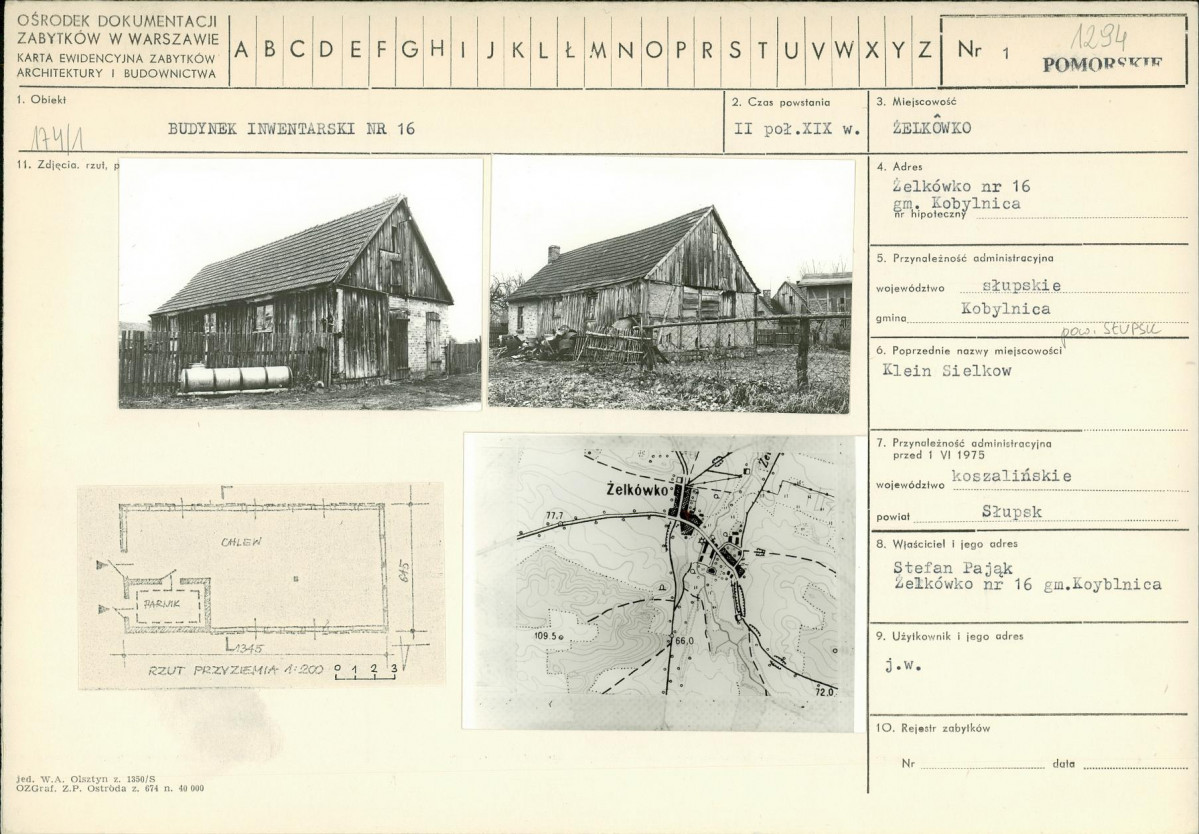 OŚRODEK DOKUMENTACJI
ZABYTKÓW W WARSZAWIE
KARTA EWIDENCYJNA ZABYTKÓW
ARCHITEKTURY I BUDOWNICTWA
A B C D E F G H I J K L Ł M N O P R S T U V W X Y Z
Nr 1
1294
POMORSKIE
1. Obiekt
174/1
BUDYNEK INWENTARSKI NR 16
2. Czas powstania
II poł.XIX w.
3. Miejscowość
ŻELKÔWKO
11. Zdjęcia. rzut, p
4. Adres
Żelkówko nr 16
gm. Kobylnica
nr hipoteczny
5. Przynależność administracyjna
województwo słupskie
gmina Kobylnica
pow. SŁUPSK
6. Poprzednie nazwy miejscowości
Klein Sielkow
7. Przynależność administracyjna
przed 1 VI 1975
województwo koszalińskie
powiat Słupsk
8. Właściciel i jego adres
Stefan Pająk
Żelkówko nr 16 gm.Koyblnica
9. Użytkownik i jego adres
j.w.
10. Rejestr zabytków
Nr data
CHLEW
PARNIK
645
1345
RZUT PRZYZIEMIA 1:200
0 1 2 3
Żelkówko
77,7
109.5
66,0
72,0
jed. W.A. Olsztyn z. 1350/S
OZGraf. Z.P. Ostróda z. 674 n. 40 000